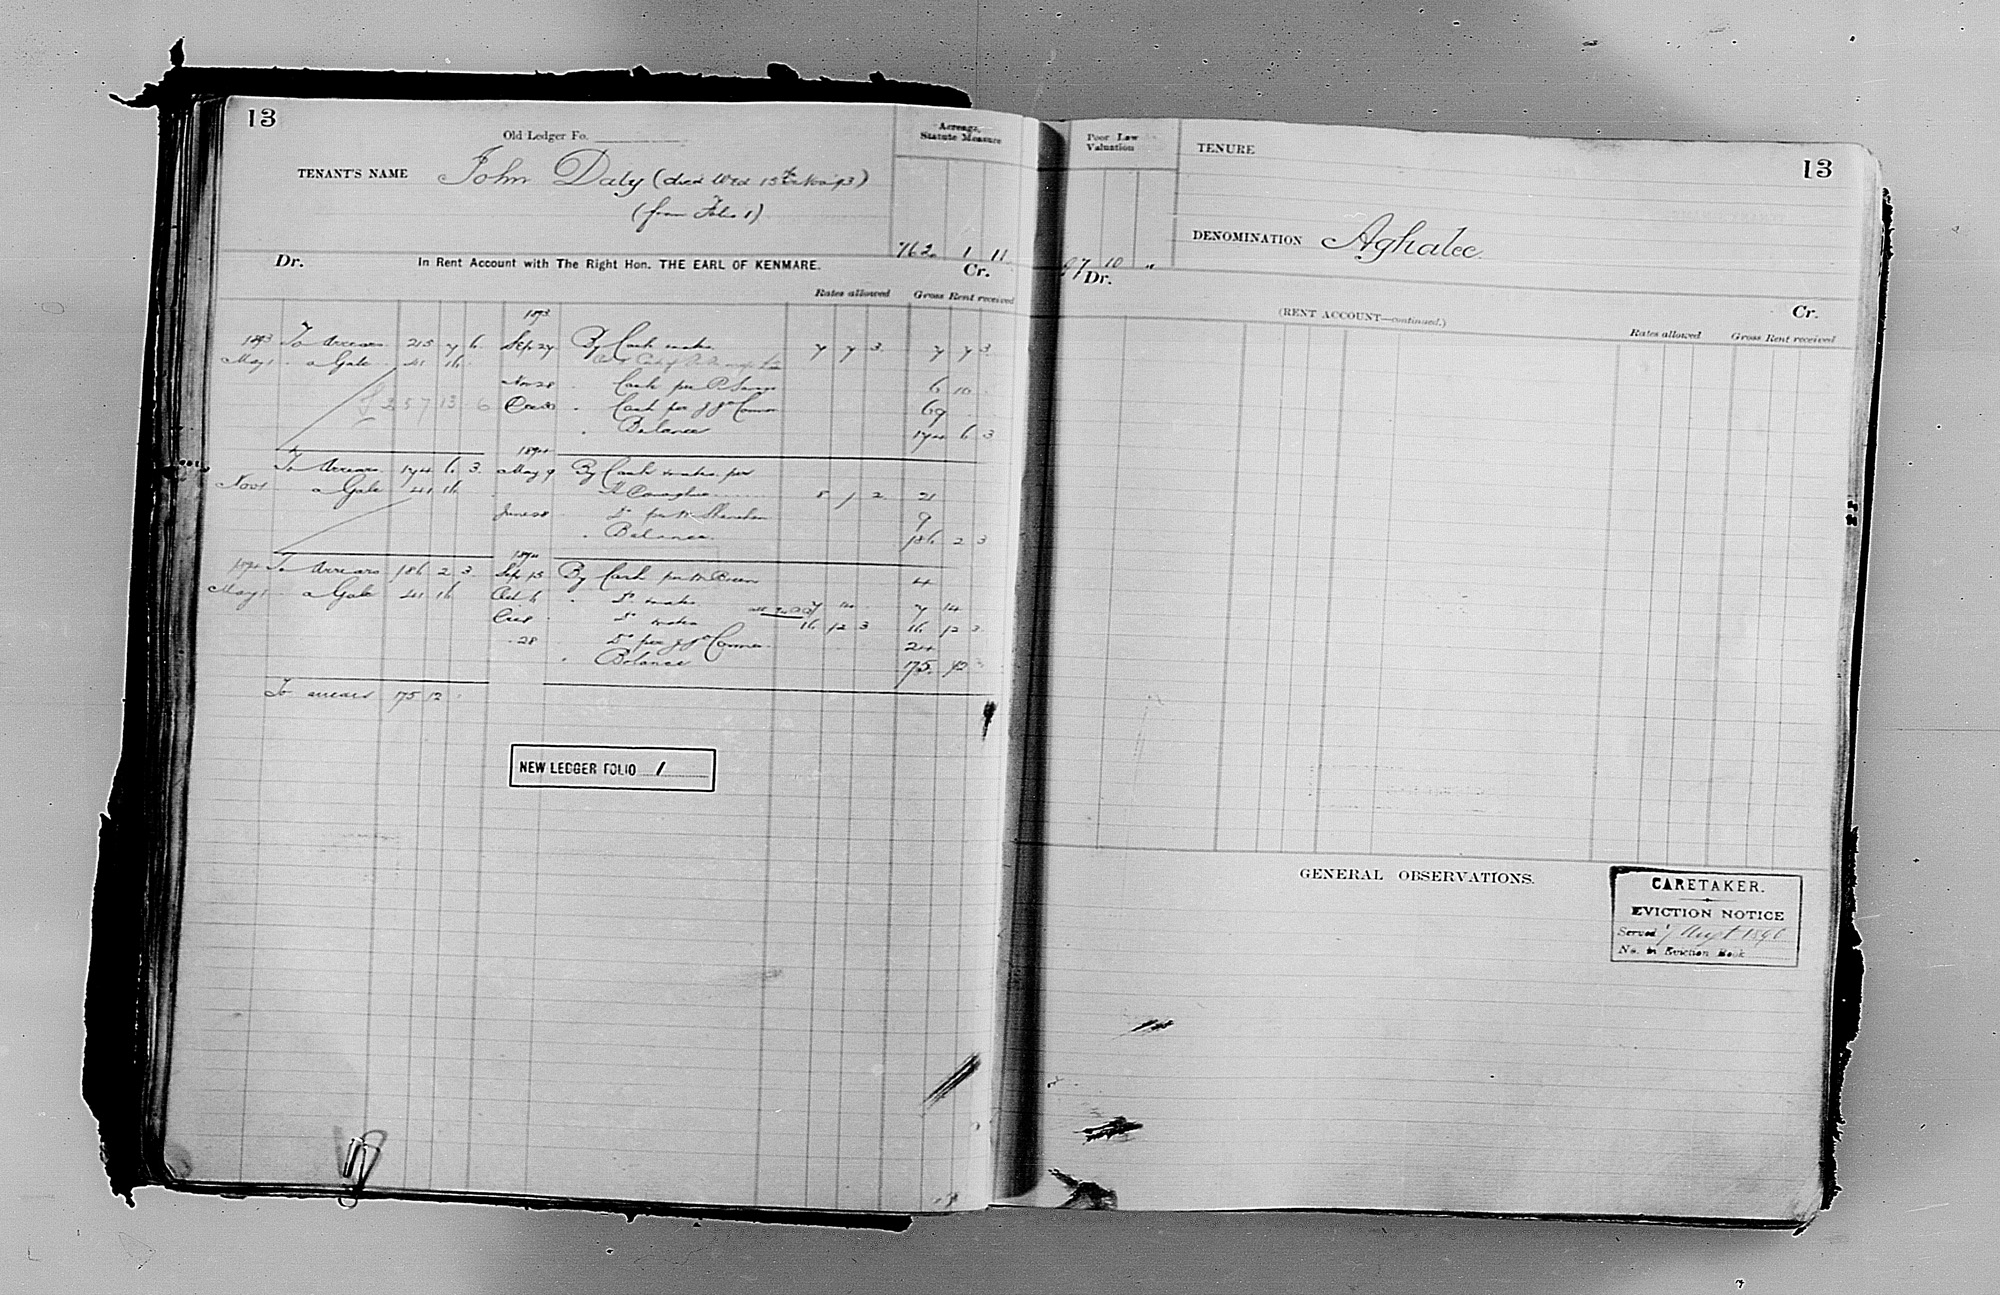 13
Old Ledger Fo.
Acreage, Statute Measure
TENANT'S NAME John Daly (died Wed 15th Nov 93)
(from Folio 1)
762 1 11
Dr. In Rent Account with The Right Hon. THE EARL OF KENMARE. Cr.
Rates allowed Gross Rent received
1893
1893 To Arrears 215 7 6 Sep 27 By Cash 7 7 3 7 7 3
May 1 a Gale 41 16
Nov 28 Cash per 6 10
£257 13 6 Dec 30 Cash per J J O'Connor 69
" Balance 174 6 3
1894
To Arrears 174 6 3 May 9 By Cash per
Nov 1 a Gale 41 16 Donoghue 8 1 2 21
June 28 Do per M Shanahan 9
" Balance 186 2 3
1894
1894 To Arrears 186 2 3 Sep 15 By Cash per 4
May 1 a Gale 41 16 Oct 6 " Do 7 14 7 14
Do 16 12 3 16 12 3
" 28 Do per J J O'Connor 24
" Balance 175 12
To arrears 175 12
NEW LEDGER FOLIO 1
Poor Law Valuation
TENURE
13
DENOMINATION Aghalee
10 "
Dr. Cr.
(RENT ACCOUNT—continued.)
Rates allowed Gross Rent received
GENERAL OBSERVATIONS.
CARETAKER.
EVICTION NOTICE
Served 7 Augst 1896
No. in Eviction Book